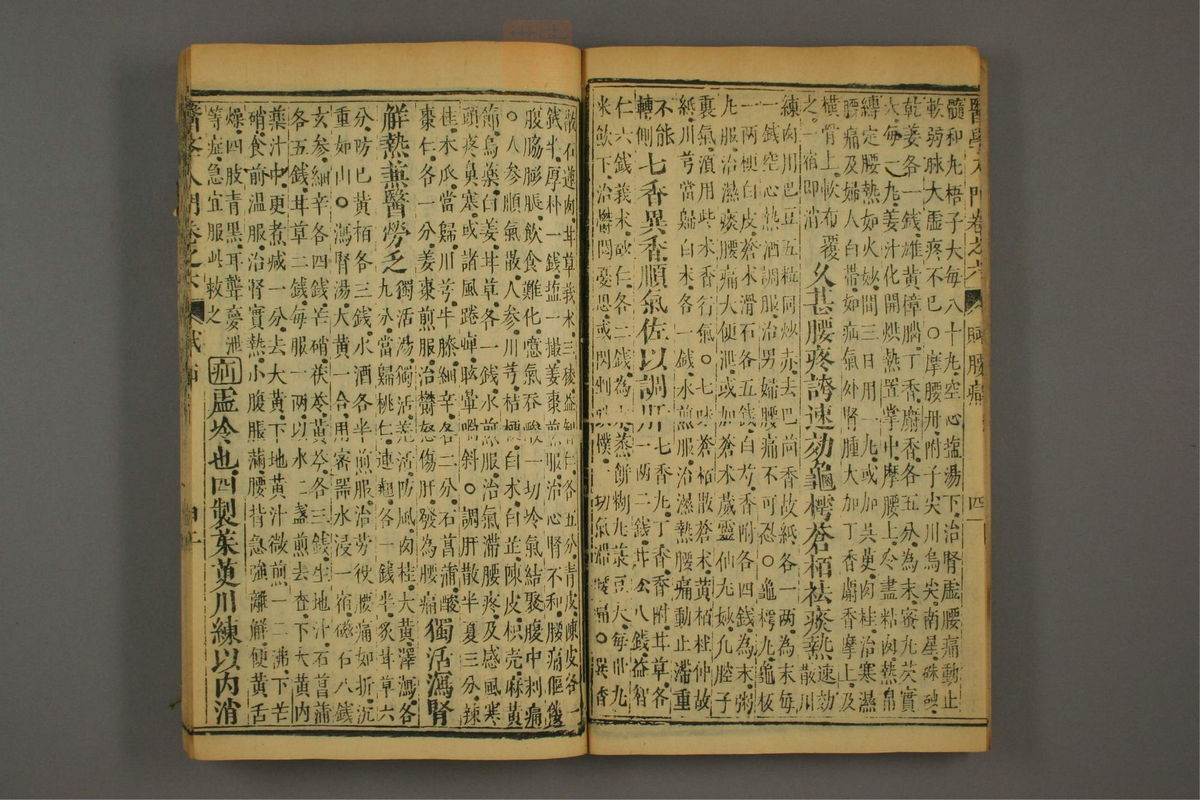 醫學入門卷之六 賦腰痛 四一
髓和丸梧子大每八十九空心塩湯下治腎虛腰痛動止
軟弱脉大虛疼不已○摩腰丹附子尖川烏尖南星硃砂
乾姜各一錢雄黃樟腦丁香麝香各五分為末蜜丸芡實
大每一丸姜汁化開烘熱置掌中摩腰上令盡粘肉熱帛
縛定腰熱如火妙間三日用一九或加吳萸肉桂治寒濕
腰痛及婦人白帶如疝氣外腎腫大加丁香麝香摩上及
橫骨上軟布覆之一宿即消 久甚腰疼誇速効龜樗蒼栢祛痰熱速効散川
練肉川巴豆五粒同炒赤去巴茴香故紙各一兩為末每
一錢空心熱酒調服治男婦腰痛不可忍○龜樗丸龜板
一兩樗白皮蒼朮滑石各五錢白芍香附各四錢為末粥
九服治濕痰腰痛大便泄或加蒼朮威靈仙尤妙凡腔子
裏氣滇用些木香行氣○七味蒼栢散蒼朮黃栢杜仲故
紙川芎當歸白朮各一錢水煎服治濕熱腰痛動止滯重
不能轉側 七香異香順氣佐以調肝七香九丁香香附甘草各
一兩二錢甘松八錢益智
仁六錢莪朮砂仁各二錢為末蒸餅糊九菉豆大每廿九
米飲下治鬱悶憂思或閃剉跌撲一切氣滯腰痛○異香
散石蓮肉甘草莪朮三稜益智仁各五分青皮陳皮各一
錢半厚朴一錢塩一撮姜棗煎服治腎氣不和腰痛傴僂
腹脇膨脹飲食難化噫氣吞酸一切冷氣結聚腹中刺痛
○人參順氣散人參川芎桔梗白朮白芷陳皮枳壳麻黃
節烏藥白姜甘草各一錢水煎服治氣滯腰疼及感風寒
頭疼鼻寒或諸風踡嚲眩暈喎斜○調肝散半夏三分辣
桂木瓜當歸川芎牛膝細辛各二分石菖蒲酸
棗仁各一分姜棗煎服治鬱怒傷肝發為腰痛 獨活瀉腎
解熱兼醫勞乏獨活湯獨活羌活防風肉桂大黃澤瀉各
九分當歸桃仁連翹各一錢半炙甘草六
分防巴黃栢各三錢水酒各半煎服治勞役腰痛如折沉
重如山○瀉腎湯大黃一合用密器水浸一宿磁石八錢
玄參細辛各四錢芒硝茯苓黃芩各三錢生地汁石菖蒲
各五錢甘草二錢每服一兩以水二盞煎去查下大黃內
藥汁中更煮減一分去大黃下地黃汁微煎一二沸下芒
硝食前溫服治腎實熱小腹脹滿腰背急強離解便黃舌
燥四肢青黑耳聾夢泄等症急宜服此救之 疝虛冷也四製茱萸川練以內消
醫學入門卷之六